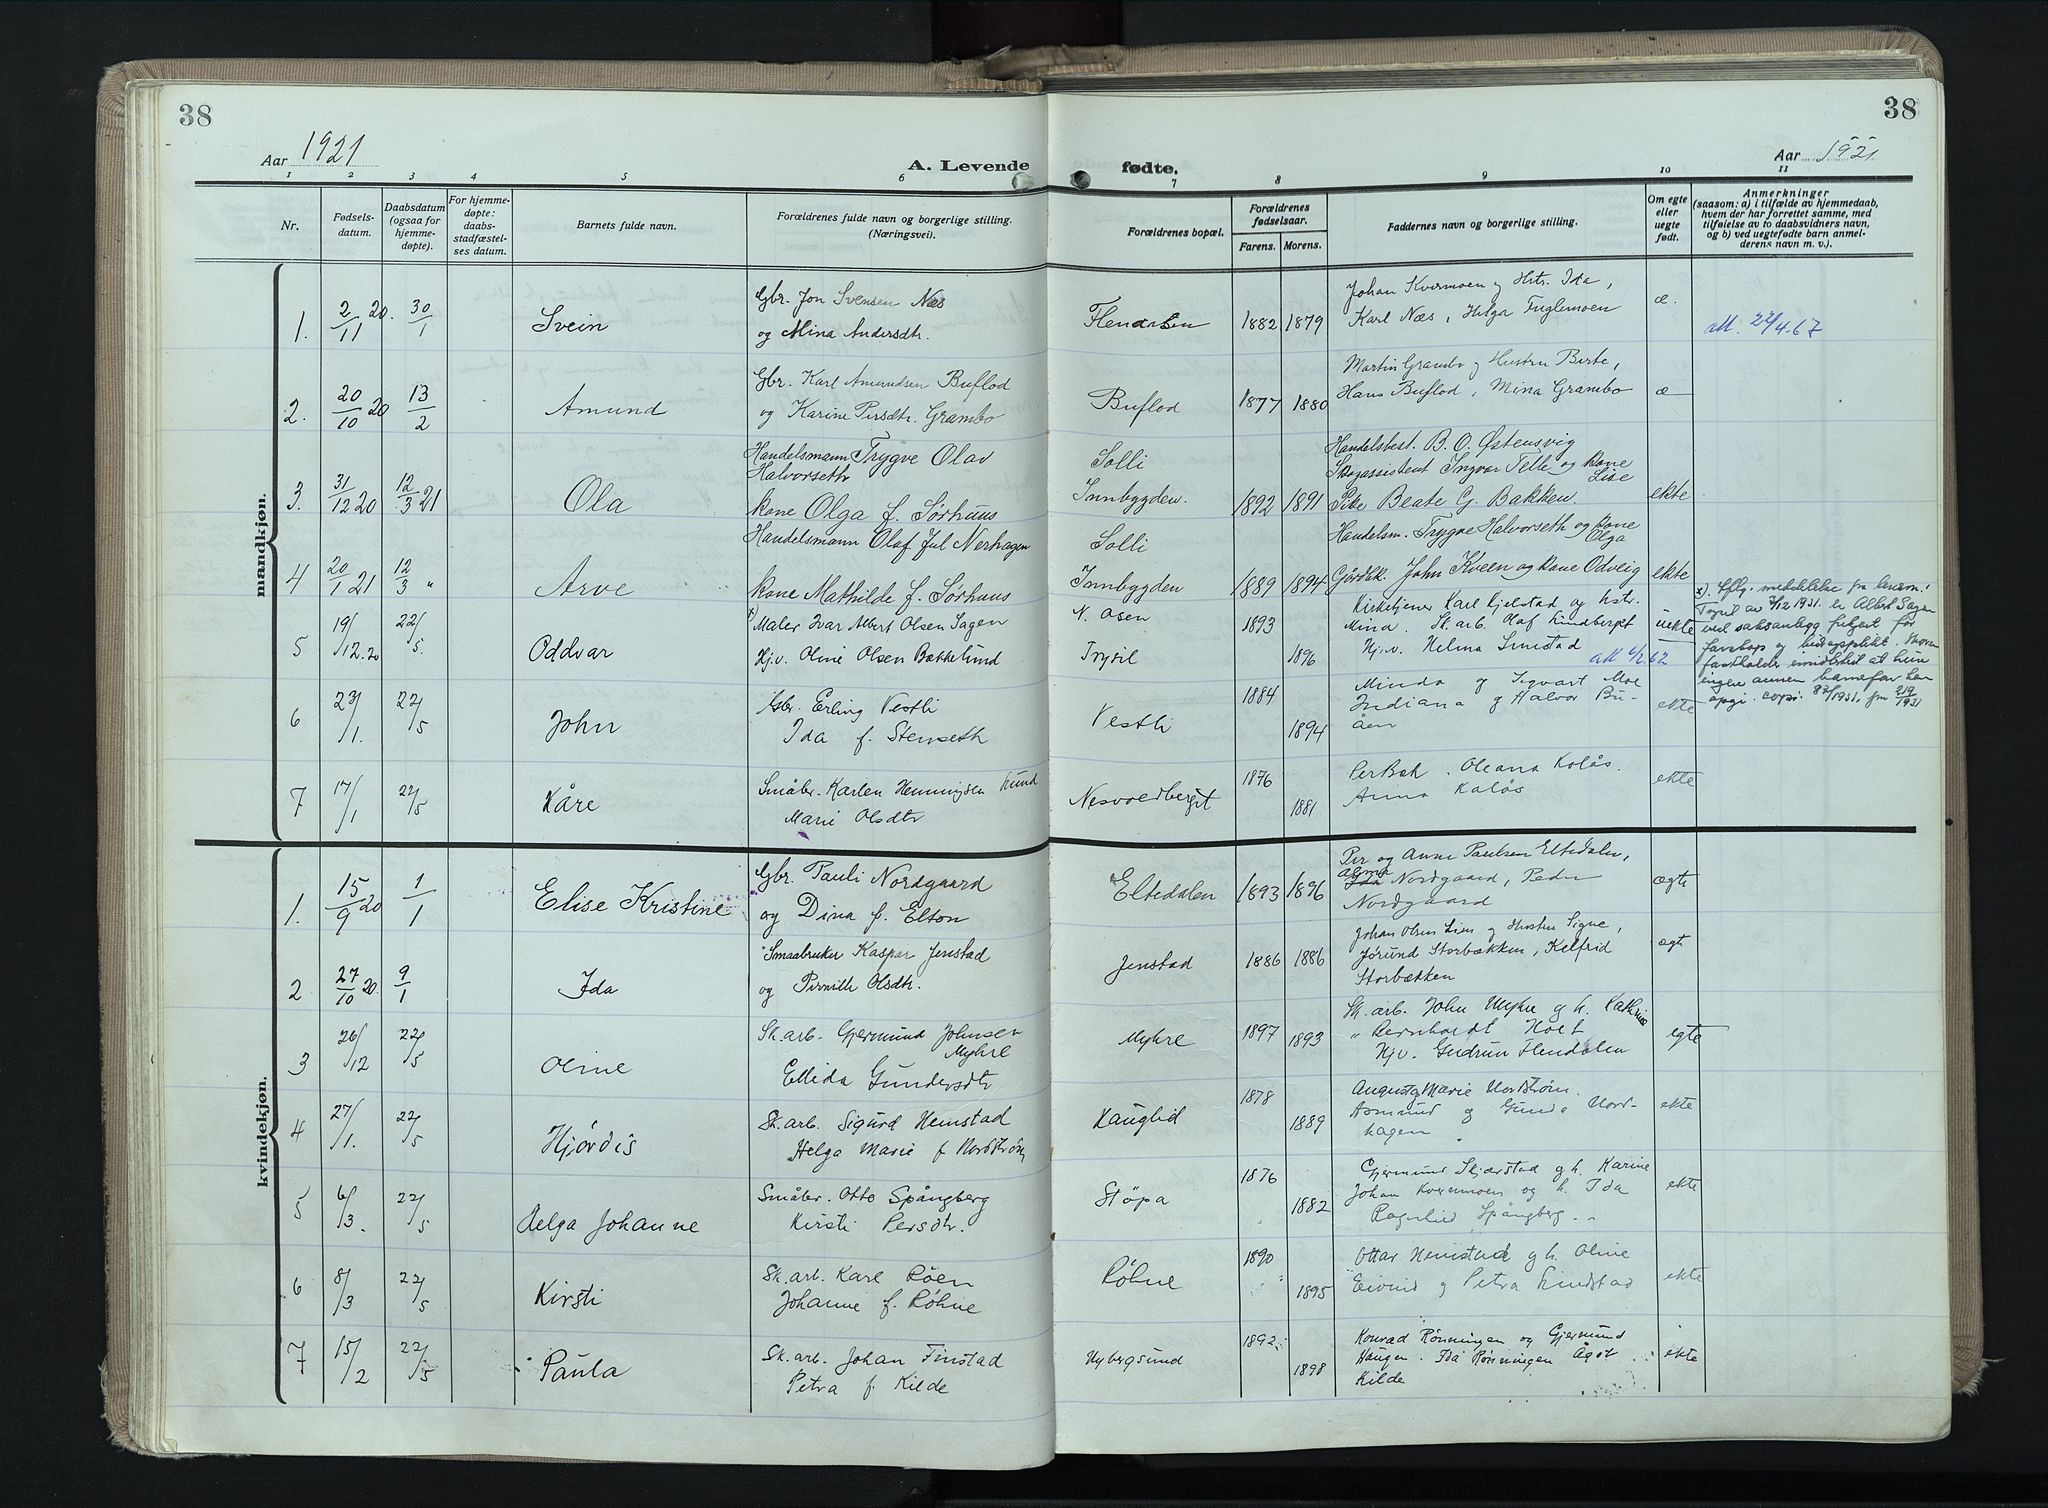 38
38
Aar 1921
A. Levende
fødte.
Aar 1921
1 2 3 4 5 6 7 8 9 10 11
Nr.
Fødsels-
datum.
Daabsdatum
(ogsaa for
hjemme-
døpte).
For hjemme-
døpte: daabs-
stadfæstel-
ses datum.
Barnets fulde navn.
Forældrenes fulde navn og borgerlige stilling.
(Næringsvei).
Forældrenes bopæl.
Forældrenes
fødselsaar.
Farens. Morens.
Faddernes navn og borgerlige stilling.
Om egte
eller
uegte
født.
Anmerkninger
(saasom: a) i tilfælde av hjemmedaab,
hvem der har forrettet samme, med
tilføielse av to daabsvidners navn,
og b) ved uegtefødte barn anmel-
derens navn m. v.).
mandkjøn.
1. 2/11 20. 30/1 Svein
Gbr. Jon Svensen Næs
og Mina Andersdtr.
Flendalen 1882 1879
Johan Kvermoen og Hstr. Ida,
Karl Næs, Helga Fuglemoen
æ.
att. 27/4.67
2. 20/10 20 13/2 Amund
Gbr. Karl Amundsen Buflod
og Karine Persdtr. Grambo
Buflod 1877 1880
Martin Grambo og Hustru Berte,
Hans Buflod, Mina Grambo
æ
3. 31/12 20 12/3 21 Ola
Handelsmann Trygve Olav
Halvorseth
kone Olga f. Sørhuus
Solli
Innbygden. 1892 1891
Handelsbest. B. O. Østensvig
Skogassistent Ingvar Telle og kone
Lise
Pike Beate G. Bakken
ekte
4 20/1 21 12/3 " Arve
Handelsmann Olaf Jul Nerhagen
kone Mathilde f. Sørhuus
Solli
Innbygden 1889 1894
Handelsm. Trygve Halvorseth og kone
Olga
Gårdbk. John Kveen og kone Odveig
ekte
5 19/12.20 22/5. Oddvar
x) Maler Ivar Albert Olsen Sagen
Hj.v. Oline Olsen Bækkelund
N. Osen
Trysil
1893 1896
Kirketjener Karl Kjelstad og hstr.
Mina. Sk. arb. Olaf Lindberget
Hj.v. Helma Smestad
uekte
6 23/1. 22/5 John
Gbr. Erling Vestli
Ida f. Stenseth
Vestli
1884 1894
Minda og Sigvart Moe
Indiana og Halvor Bu-
åen
ekte
7 17/1 22/5 Kåre
Småbr. Karlen Henningsen Lund
Marie Olsdtr
Nesvoldberget
1876 1881
Per Bek. Oleana Kolås.
Anna Kolås
ekte
kvindekjøn.
1. 15/9 20 1/1 Elise Kristine
Gbr. Pauli Nordgaard
og Dina f. Elton
Eltedalen 1893 1896
Per og Anne Paulsen Eltedalen,
Alma Nordgaard, Peder
Nordgaard
ægte
2 27/10 20. 9/1 Ida
Smaabruker Kaspar Jenstad
og Pernille Olsdtr.
Jenstad 1886 1886
Johan Olsen Lien og Hustru Signe,
Jørund Storbækken, Kelfrid
Storbækken
ægt
3 26/12 22/5 Oline
Sk. arb. Gjermund Johnsen
Myhre
Ellida Gundersdtr
Myhre 1897 1893
Sk. arb. John Myhre og h. Kathrine
" Bernhardt Holt
Hj.v. Gudrun Flendalen
egte
4 27/1. 22/5 Hjørdis
Sk. arb. Sigurd Nemstad
Helga Marie f Nordstrøm
Kauglid
1878 1889
August og Marie Nordstrøm.
Asmund og Gunda Nord-
hagen.
ekte
5 6/3. 22/5 Helga Johanne
Småbr. Otto Spångberg
Kirsti Persdtr.
Støpa
1876 1882
Gjermund Skjærstad og h. Karine
Johan Kvermoen og h. Ida
Ragnhild Spångberg
ekte
6 8/3 22/5 Kirsti
Sk. arb. Karl Røen
Johanne f. Røhne
Røhne
1890 1895
Ottar Nemstad og h. Oline
Eivind og Petra Lindstad
ekte
7 15/2 22/5 Paula
Sk. arb. Johan Finstad
Petra f. Kilde
Nybergsund
1892. 1898
Konrad Rønningen og Gjermund
Haugen. Ida Rønningen Ågot
Kilde
ekte